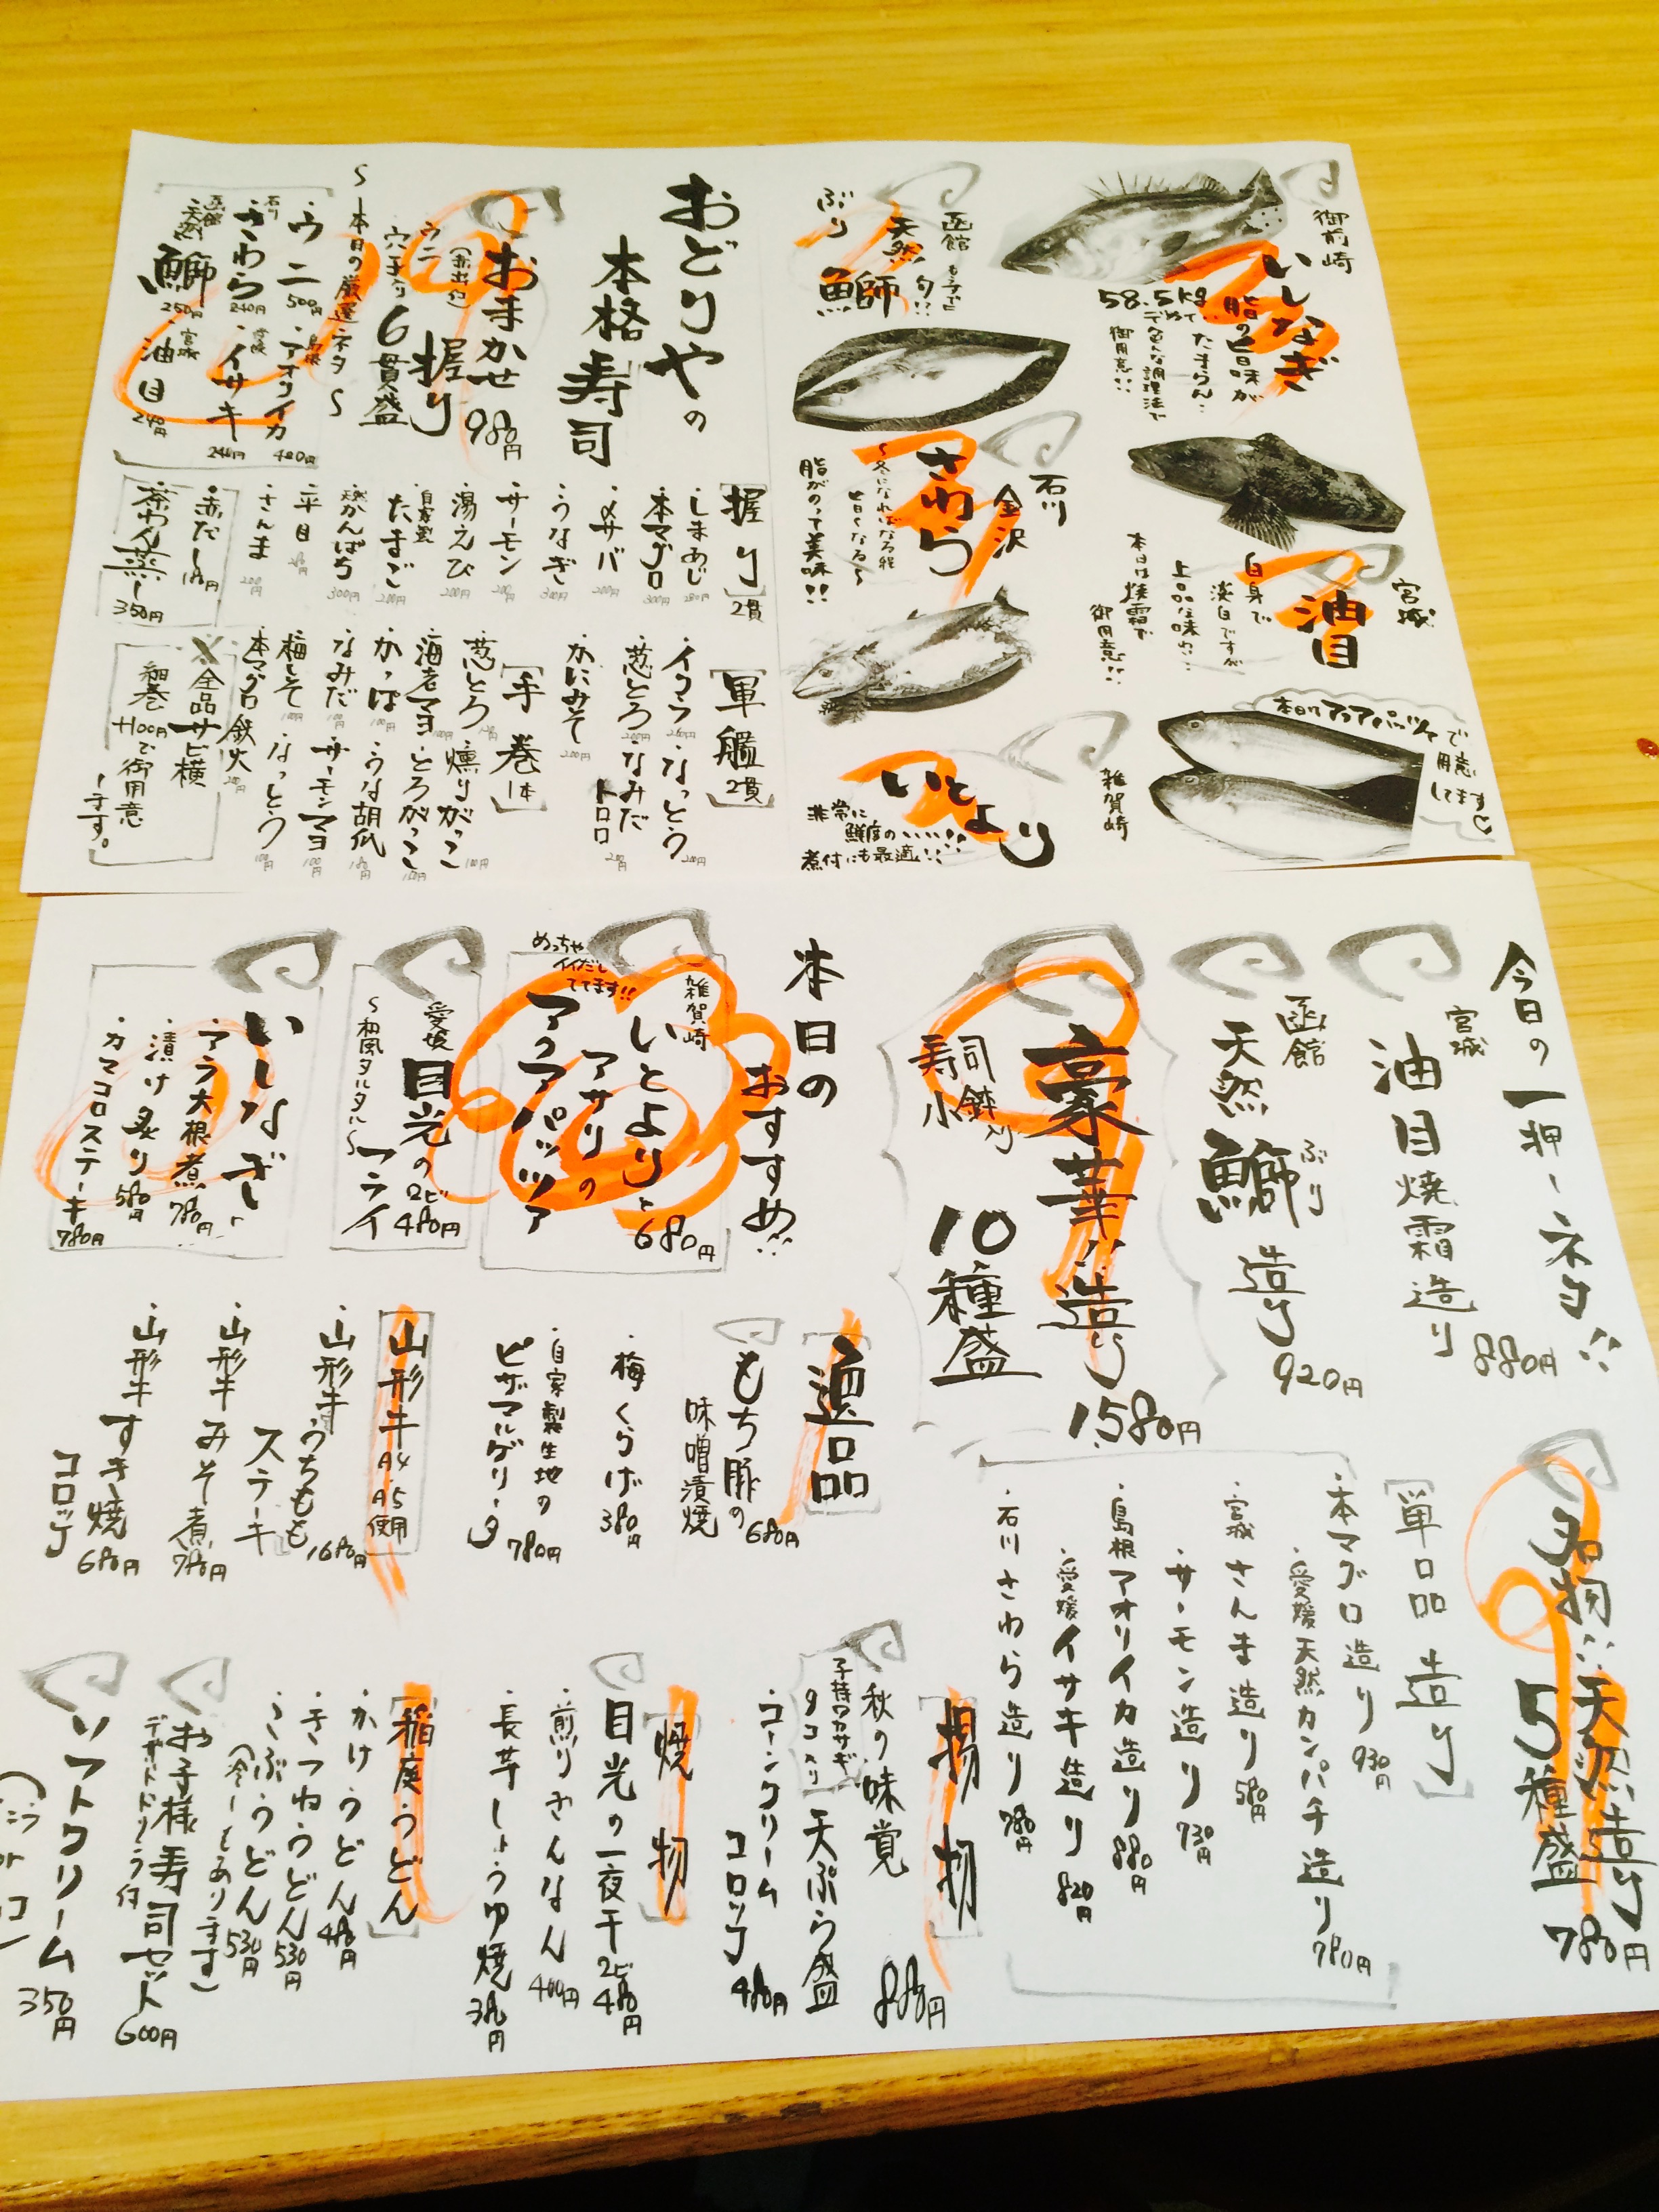 御前崎
いしなぎ
58.5kg
脂の旨味が
たまらん…
御用意!!
宮城
油目
白身で
淡白ですが
上品な味わい…
本日は焼霜で
御用意!!
本日はアクアパッツァで
用意
してます♡
函館
天然
ぶり
鰤
石川
金沢
さわら
〜冬になればなる程
旨くなる〜
脂がのって美味!!
雑賀崎
いとより
非常に
鮮度のいい!!
煮付にも最適!!
おどりやの
本格寿司
おまかせ
握り
980円
(赤出し付)
ウニ
穴子入り
6貫盛
〜本日の厳選ネタ〜
・ウニ 500円
・島根 アオリイカ 480円
・石川 さわら 240円
・愛媛 イサキ 240円
・函館天然 鰤 250円
・宮城 油目 240円
[握り] 2貫
・しまあじ 280円
・本マグロ 300円
・〆サバ 200円
・うなぎ 300円
・サーモン 200円
・湯えび 200円
・自家製たまご 200円
・かんぱち 300円
・平目
・さんま 200円
・赤だし 180円
・茶わん蒸し 350円
[軍艦] 2貫
・イクラ
・なっとう 200円
・葱とろ 200円
・なみだトロロ 200円
・かにみそ 200円
[手巻] 1本
・葱とろ
・燻りがっこ 100円
・海老マヨ
・とろがっこ
・かっぱ 100円
・うな胡瓜 180円
・なみだ 100円
・サーモンマヨ 100円
・梅しそ 100円
・なっとう 100円
・本マグロ鉄火
※全品サビ横
細巻+100円で御用意
します。
今日の一押しネタ!!
宮城
油目焼霜造り
880円
函館
天然鰤造り
ぶり
920円
豪華!!造り
寿司小鉢入り
10種盛
1,580円
名物!!天然造り
5種盛
780円
[単品造り]
・本マグロ造り 930円
・愛媛天然カンパチ造り 780円
・宮城さんま造り 580円
・サーモン造り 730円
・島根アオリイカ造り 880円
・愛媛イサキ造り 820円
・石川さわら造り 780円
本日の
おすすめ!!
雑賀崎
いとよりと
アサリの
アクアパッツァ
680円
めっちゃ
イイだし
でてます!!
愛媛
目光のフライ
2ビ 480円
〜和風タルタル〜
いしなぎ
・アラ大根煮 780円
・漬け炙り 580円
・カマコロステーキ 780円
[逸品]
・もち豚の
味噌漬焼
680円
・梅くらげ 380円
・自家製生地の
ピザマルゲリータ 780円
山形牛A4・A5使用
・山形牛うちもも
ステーキ 1680円
・山形牛みそ煮 780円
・山形牛すき焼
コロッケ 680円
[揚物]
秋の味覚
天ぷら盛
880円
子持ワカサギ
タコ入り
・コーンクリーム
コロッケ 480円
[焼物]
目光の一夜干 2ビ 480円
・煎りぎんなん 400円
・長芋しょうゆ焼 380円
[稲庭うどん]
・かけうどん 480円
・きつねうどん 530円
・こぶうどん 530円
(冷しもあります)
お子様寿司セット 600円
デザートドリンク付
ソフトクリーム 350円